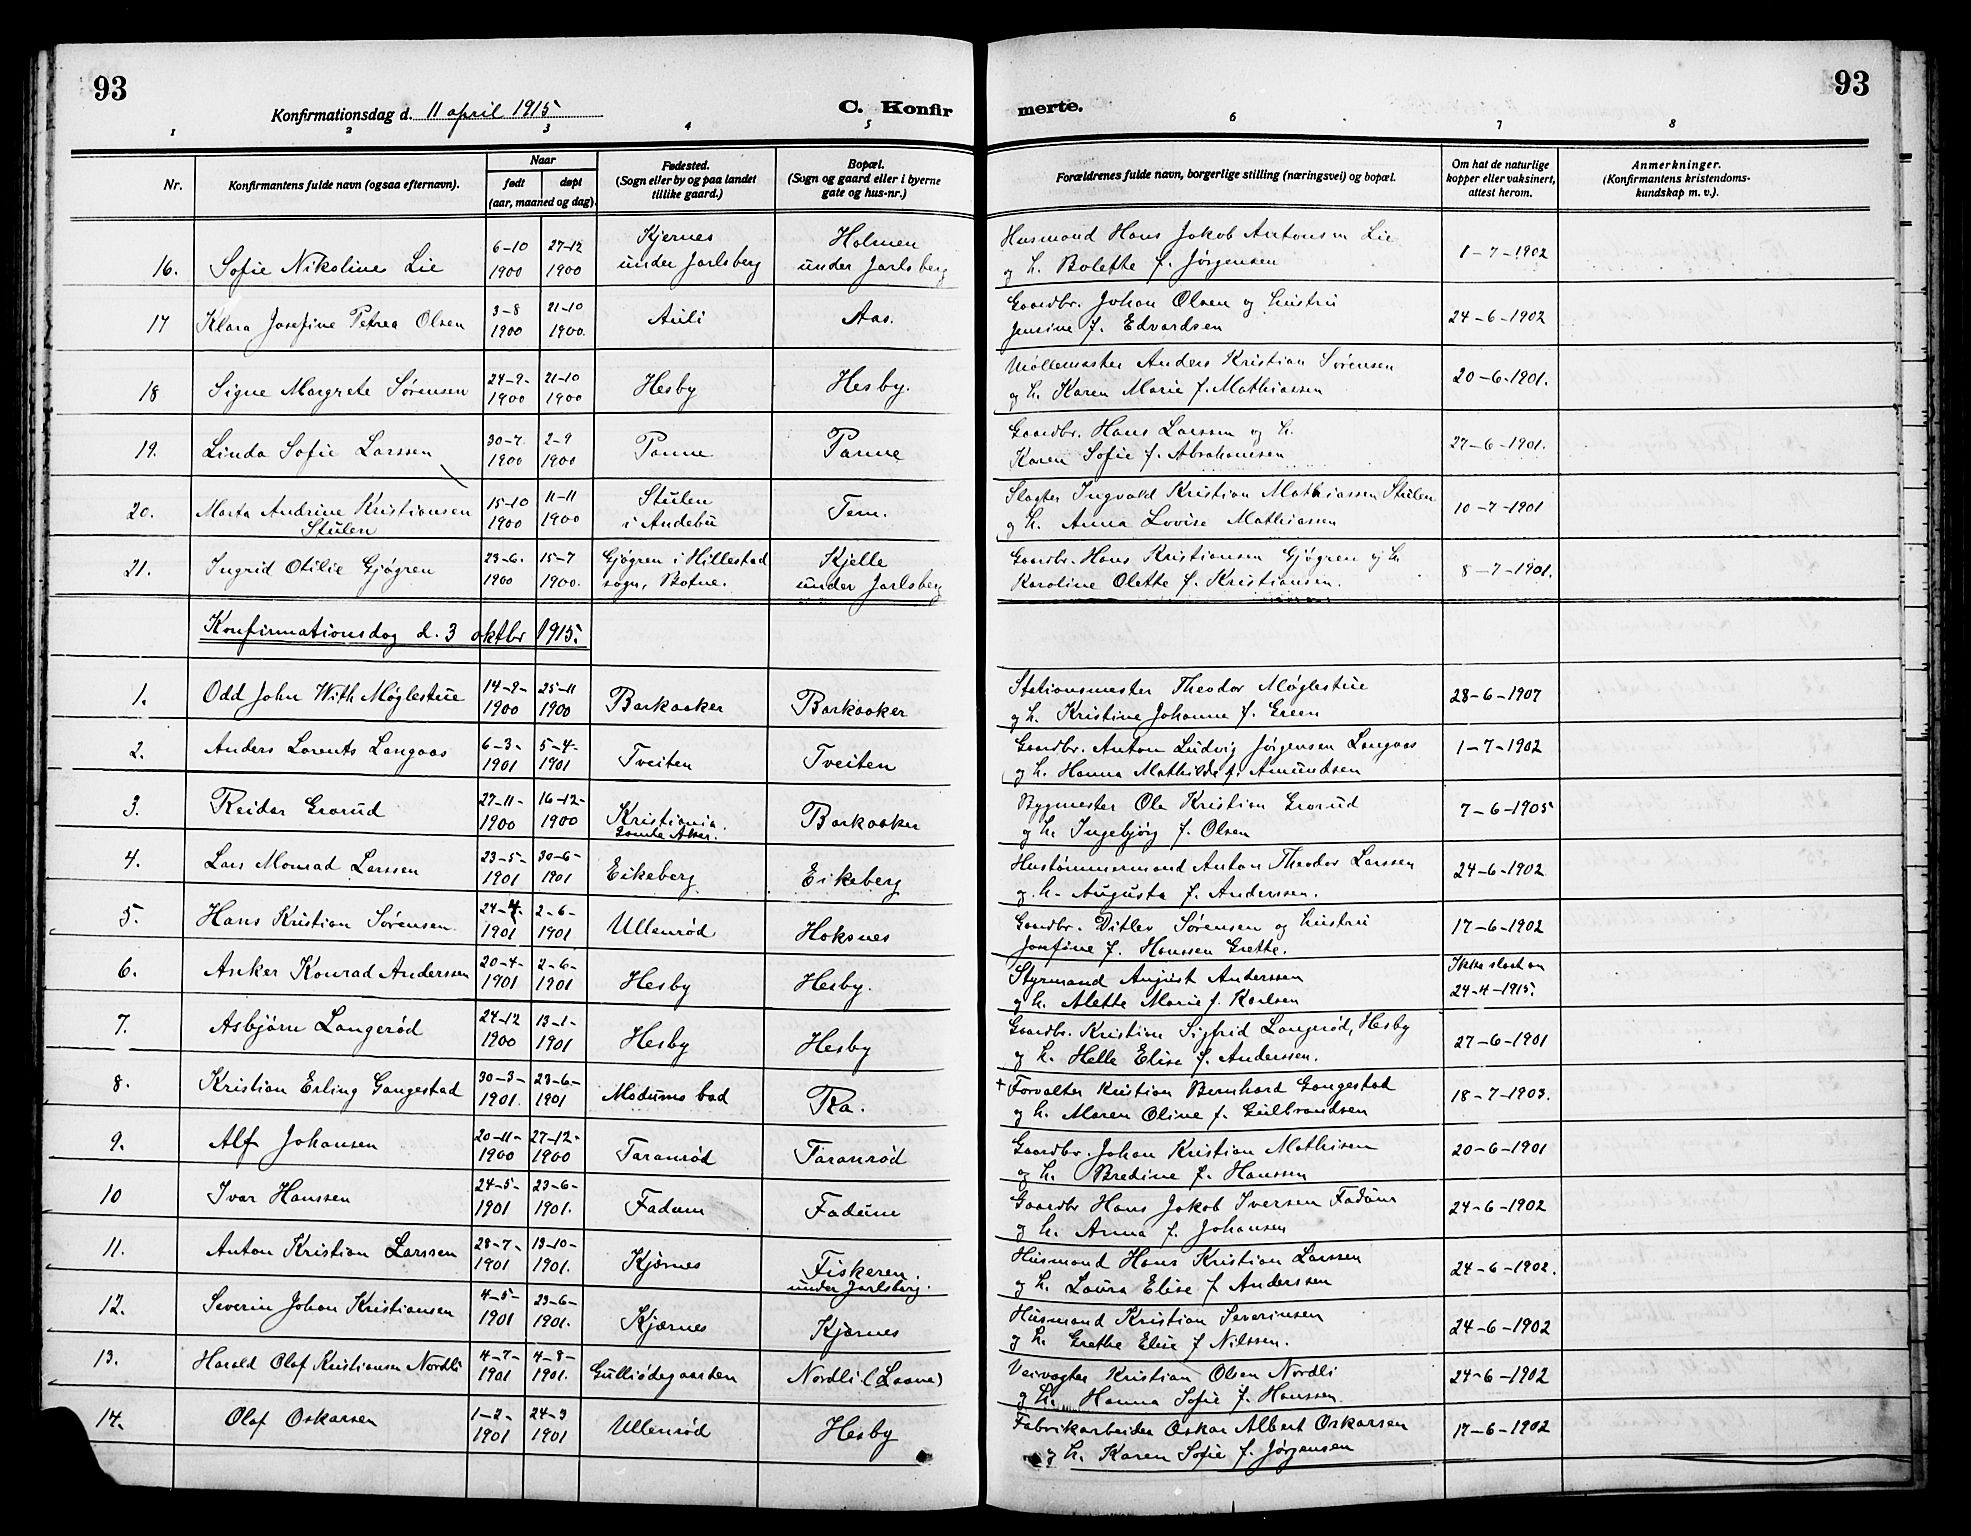 93
Konfirmationsdag d. 11 april 1915
C. Konfirmerte.
93
1 2 3 4 5 6 7 8
Nr.
Konfirmantens fulde navn (ogsaa efternavn).
Naar
født døpt
(aar, maaned og dag).
Fødested.
(Sogn eller by og paa landet
tillike gaard.)
Bopæl.
(Sogn og gaard eller i byerne
gate og hus-nr.)
Forældrenes fulde navn, borgerlige stilling (næringsvei) og bopæl.
Om hat de naturlige
kopper eller vaksinert,
attest herom.
Anmerkninger.
(Konfirmantens kristendoms-
kundskap m. v.).
16. Sofie Nikoline Lie 6-10 1900 27-12 1900 Kjernes under Jarlsberg Holmen under Jarlsberg Husmand Hans Jakob Antonsen Lie
og h. Bolette f. Jørgensen 1-7-1902
17 Klara Josefine Petrea Olsen 3-8 1900 21-10 1900. Auli Aas. Gaardbr. Johan Olsen og hustru
Jensine f. Edvardsen 24-6-1902
18 Signe Margrete Sørensen 24-9- 1900 21-10 1900 Hesby Hesby. Møllemester Anders Kristian Sørensen
og h. Karen Marie f. Mathiassen 20-6-1901.
19. Linda Sofie Larssen 30-7. 1900 2-9 1900 Panne Panne Gaardbr. Hans Larssen og h.
Karen Sofie f. Abrahamsen 27-6-1901.
20. Marta Andrine Kristiansen Stulen 15-10 1900 11-11 1900 Stulen i Andebu Tem. Slagter Ingvald Kristian Mathiassen Stulen
og h. Anna Lovise Mathiassen 10-7-1901
21. Ingrid Otilie Gjøgren 23-6. 1900 15-7 1900. Gjøgren i Hillestad sogn, Botne. Kjelle under Jarlsberg Gaardbr. Hans Kristiansen Gjøgren og h.
Karoline Olette f. Kristiansen. 8-7-1901.
Konfirmationsdag d. 3 oktbr 1915.
1. Odd John With Møglestue 14-9- 1900 25-11 1900 Barkaaker Barkaaker Stationsmester Theodor Møglestue
og h. Kristine Johanne f. Green 28-6-1907
2. Anders Lorents Langaas 6-3- 1901 5-4- 1901 Tveiten Tveiten Gaardbr. Anton Ludvig Jørgensen Langaas
og h. Hanna Mathilde f. Amundsen 1-7-1902
3. Reidar Grorud 27-11- 1900 16-12- 1900 Kristiania. Gamle Aker. Barkaaker Bygmester Ole Kristian Grorud
og h. Ingebjørg f. Olsen 7-6-1905
4. Lars Monrad Larssen 23-5- 1901 30-6- 1901 Eikeberg Eikeberg Hustømmermand Anton Theodor Larssen
og h. Augusta f. Anderssen. 24-6-1902
5. Hans Kristian Sørensen. 24-4- 1901 2-6- 1901 Ullenrød Hoksnes Gaardbr. Ditlev Sørensen og hustru
Josefine f. Hanssen Grette. 17-6-1902
6. Anker Konrad Anderssen 20-4- 1901 2-6- 1901 Hesby Hesby. Styrmand August Anderssen
og h. Alette Marie f. Karlsen Ikke slaat an 24-4-1915.
7. Asbjørn Langerød 24-12 1900 13-1- 1901 Hesby Hesby Gaardbr. Kristian Sigfrid Langerød, Hesby
og h. Helle Elise f. Anderssen. 27-6-1901
8. Kristian Erling Gangestad 30-3- 1901. 23-6- 1901 Modums bad Ra. + Forvalter Kristian Bernhard Gangestad
og h. Maren Oline f. Gulbrandsen 18-7-1903.
9. Alf Johansen 20-11- 1900 27-12- 1900 Taranrød Taranrød Gaardbr. Johan Kristian Mathisen
og h. Bredine f. Hanssen 20-6-1901
10 Ivar Hanssen 24-5- 1901 23-6- 1901. Fadum Fadum Gaardbr Hans Jakob Iversen Fadum
og h. Anna f. Johansen 24-6-1902
11. Anton Kristian Larssen 28-7- 1901 13-10- 1901. Kjærnes Fiskeren. under Jarlsberg. Husmand Hans Kristian Larssen
og h. Laura Elise f Anderssen 24-6-1902.
12. Severin Johan Kristiansen 4-5- 1901 23-6- 1901. Kjærnes Kjærnes Husmand Kristian Severinsen
og h. Grethe Elise f Nilssen. 24-6-1902
13. Harald Olaf Kristiansen Nordli 4-7- 1901 4-8- 1901. Gulliødegaarden Nordli (Laane) Veivogter Kristian Olsen Nordli
og h. Hanna Sofie f. Hanssen. 24-6-1902
14. Olaf Oskarsen 1-2- 1901 24-3 1901 Ullenrød Hesby Fabrikarbeider Oskar Albert Oskarsen
og h. Karen Sofie f. Jørgensen 17-6-1902